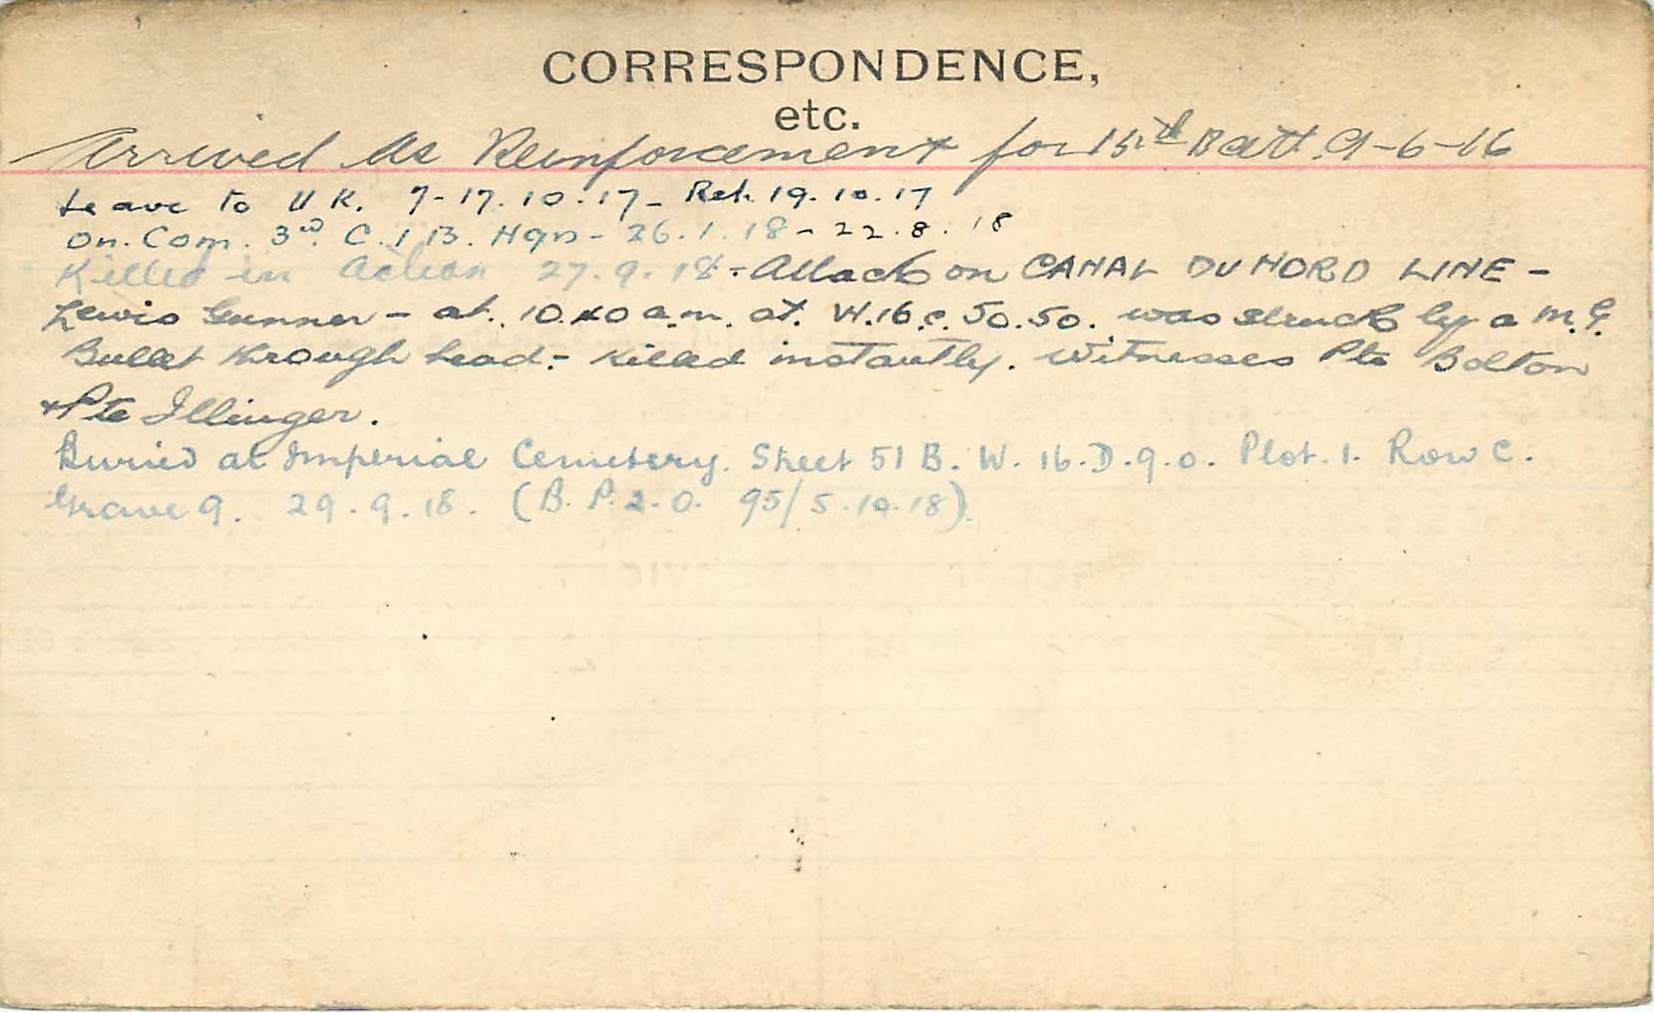 CORRESPONDENCE,
etc.
Arrived As Reinforcement for 15th Batt. 9-6-16
Leave to UK. 7-17.10.17 - Ret. 19.10.17
On. Com. 3rd. C. I B. Hqrs - 26.1.18 - 22.8.18
Killed in Action 27.9.18 - Attack on CANAL DU NORD LINE -
Lewis Gunner - at. 10.40 a.m. at. W.16.c.50.50. was struck by a M.G.
Bullet through head - Killed instantly. Witnesses Pte Bolton
& Pte Illinger.
Buried at Imperial Cemetery. Sheet 51 B. W. 16.D.9.0. Plot. 1. Row C.
Grave 9. 29.9.18. (B. P. 2.0. 95/5.10.18).